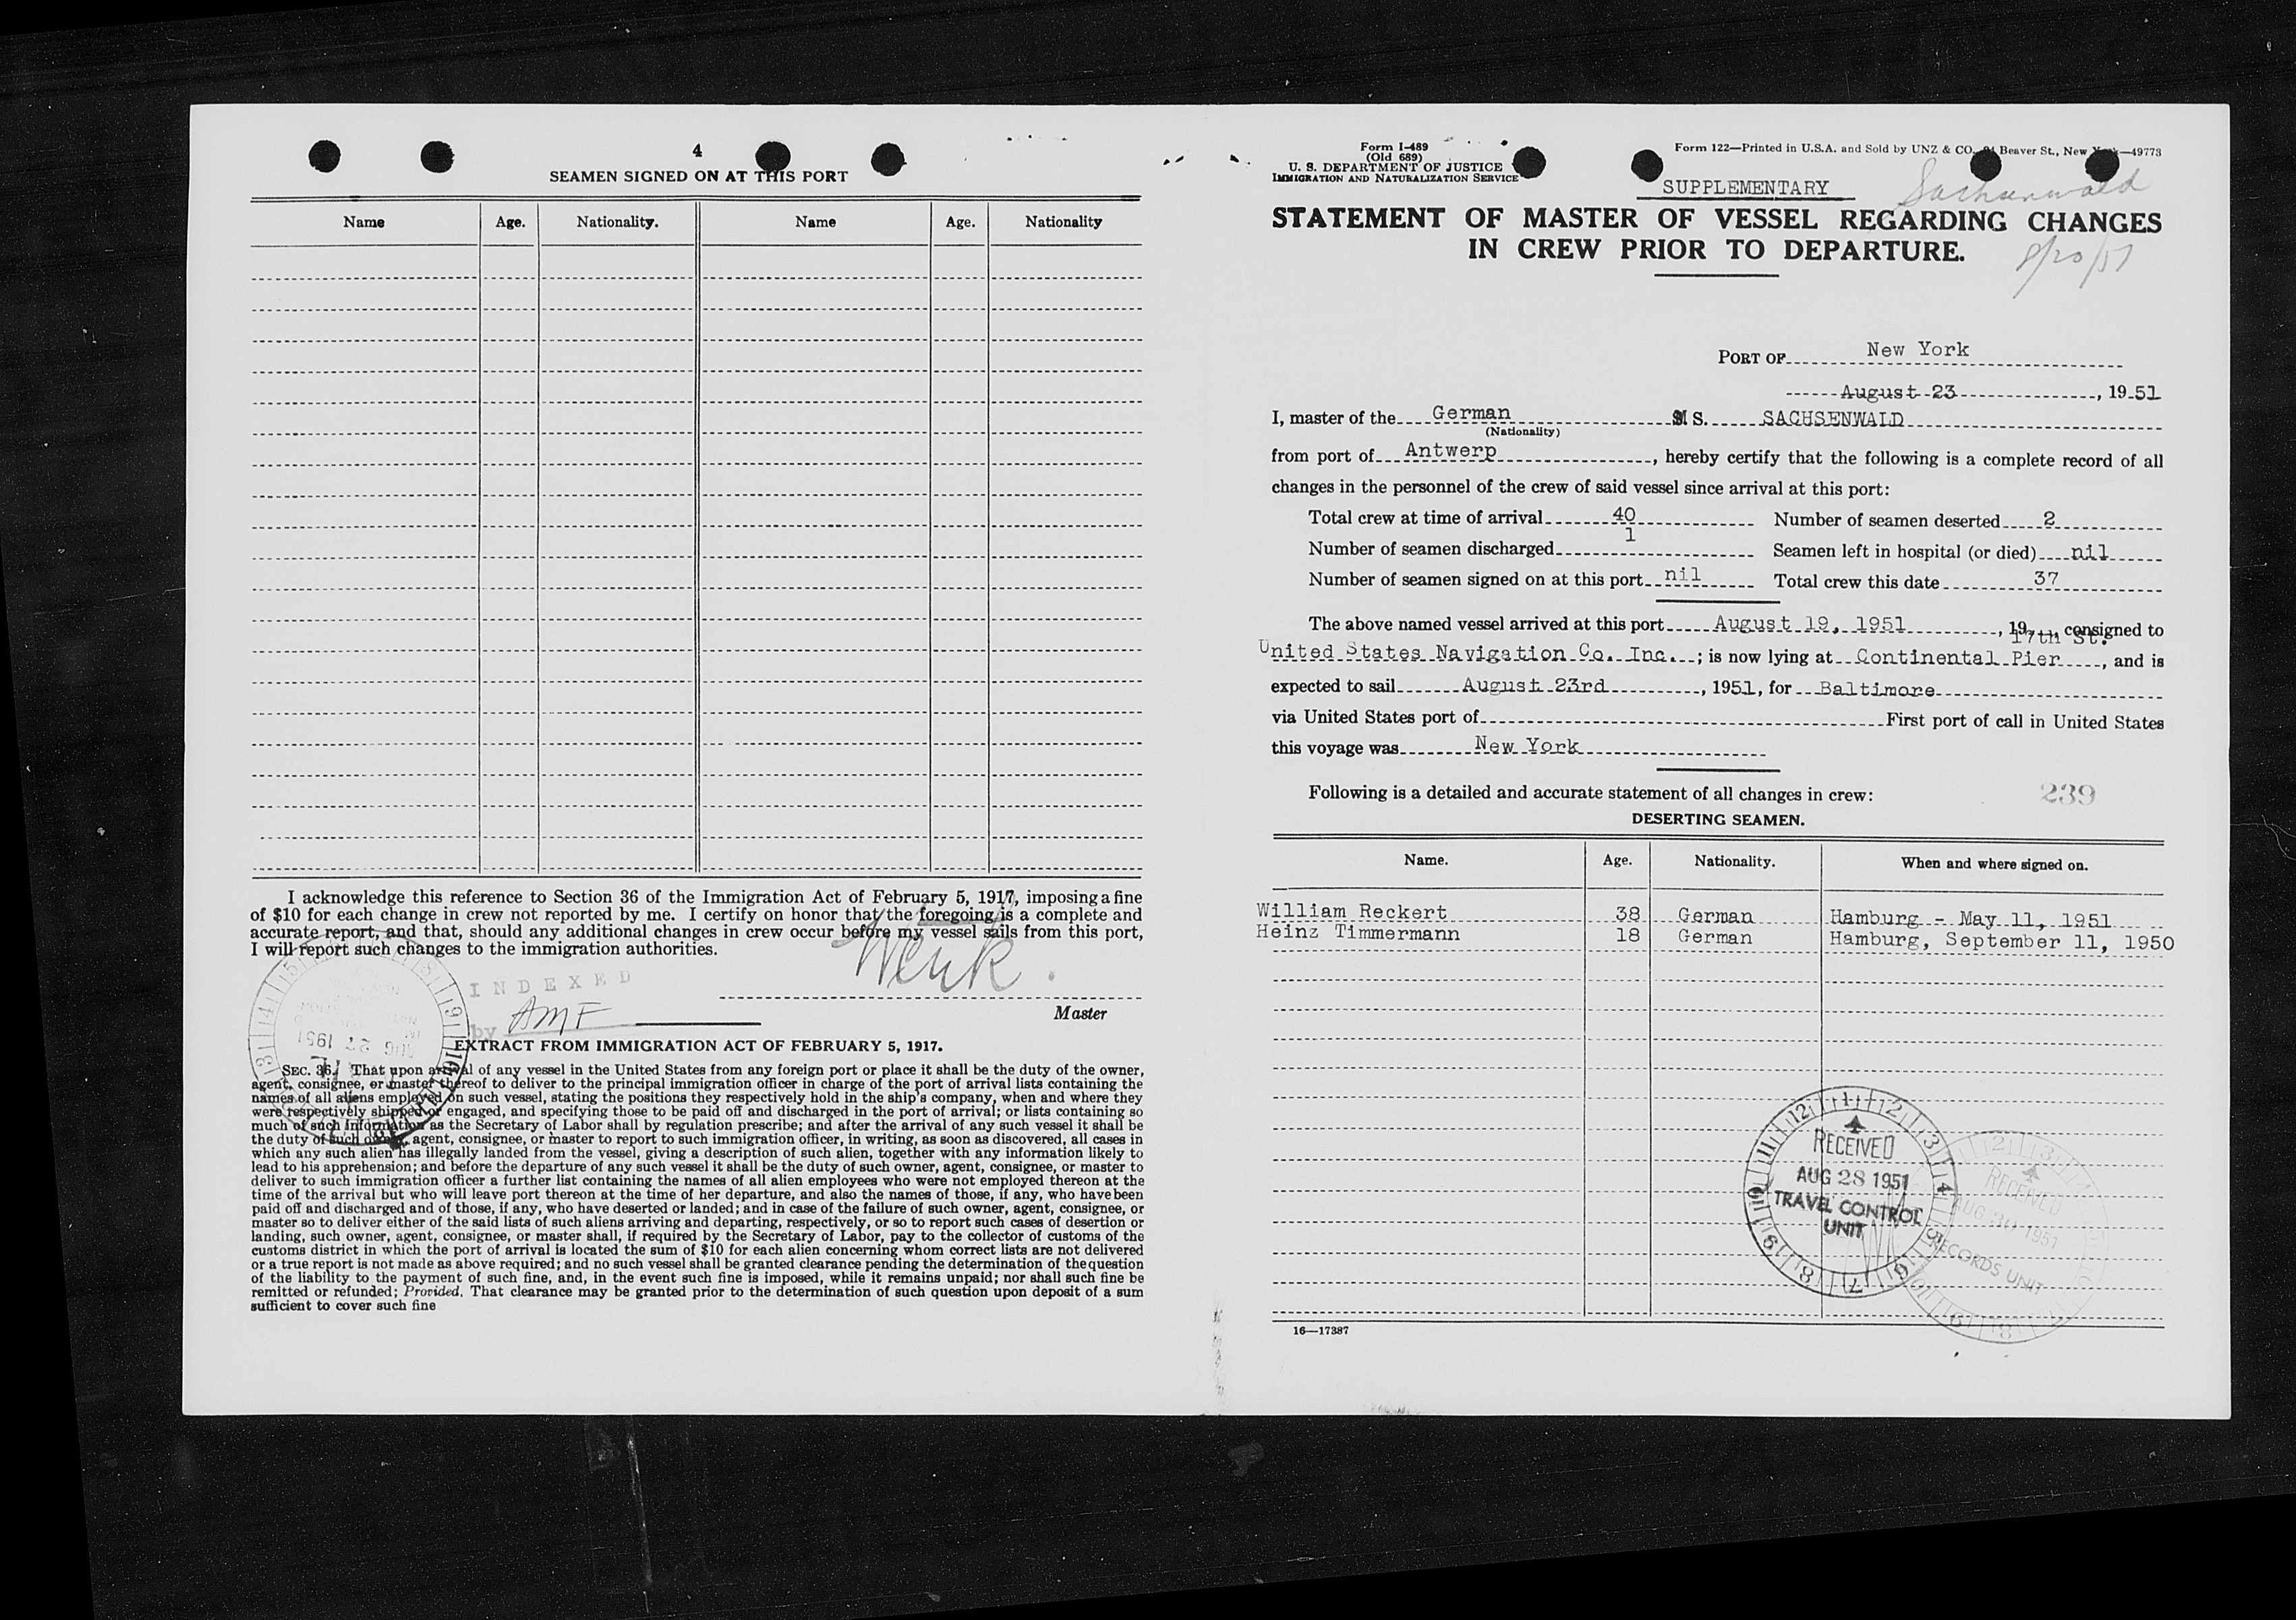 4
SEAMEN SIGNED ON AT THIS PORT
Name Age. Nationality. Name Age. Nationality
I acknowledge this reference to Section 36 of the Immigration Act of February 5, 1917, imposing a fine
of $10 for each change in crew not reported by me. I certify on honor that the foregoing is a complete and
accurate report, and that, should any additional changes in crew occur before my vessel sails from this port,
I will report such changes to the immigration authorities.
Wenk.
INDEXED
by AMF
Master
AUG 27 1951
EXTRACT FROM IMMIGRATION ACT OF FEBRUARY 5, 1917.
SEC. 36. That upon arrival of any vessel in the United States from any foreign port or place it shall be the duty of the owner,
agent, consignee, or master thereof to deliver to the principal immigration officer in charge of the port of arrival lists containing the
names of all aliens employed on such vessel, stating the positions they respectively hold in the ship's company, when and where they
were respectively shipped or engaged, and specifying those to be paid off and discharged in the port of arrival; or lists containing so
much of such information as the Secretary of Labor shall by regulation prescribe; and after the arrival of any such vessel it shall be
the duty of such owner, agent, consignee, or master to report to such immigration officer, in writing, as soon as discovered, all cases in
which any such alien has illegally landed from the vessel, giving a description of such alien, together with any information likely to
lead to his apprehension; and before the departure of any such vessel it shall be the duty of such owner, agent, consignee, or master to
deliver to such immigration officer a further list containing the names of all alien employees who were not employed thereon at the
time of the arrival but who will leave port thereon at the time of her departure, and also the names of those, if any, who have been
paid off and discharged and of those, if any, who have deserted or landed; and in case of the failure of such owner, agent, consignee, or
master so to deliver either of the said lists of such aliens arriving and departing, respectively, or so to report such cases of desertion or
landing, such owner, agent, consignee, or master shall, if required by the Secretary of Labor, pay to the collector of customs of the
customs district in which the port of arrival is located the sum of $10 for each alien concerning whom correct lists are not delivered
or a true report is not made as above required; and no such vessel shall be granted clearance pending the determination of the question
of the liability to the payment of such fine, and, in the event such fine is imposed, while it remains unpaid; nor shall such fine be
remitted or refunded; Provided, That clearance may be granted prior to the determination of such question upon deposit of a sum
sufficient to cover such fine
Form I-489
(Old 689)
U. S. DEPARTMENT OF JUSTICE
IMMIGRATION AND NATURALIZATION SERVICE
Form 122—Printed in U.S.A. and Sold by UNZ & CO. Beaver St., New York—49773
SUPPLEMENTARY
Sachsenwald
STATEMENT OF MASTER OF VESSEL REGARDING CHANGES
IN CREW PRIOR TO DEPARTURE.
8/20/51
PORT OF New York
August 23, 1951
I, master of the German M S. SACHSENWALD
(Nationality)
from port of Antwerp, hereby certify that the following is a complete record of all
changes in the personnel of the crew of said vessel since arrival at this port:
Total crew at time of arrival 40 Number of seamen deserted 2
Number of seamen discharged 1 Seamen left in hospital (or died) nil
Number of seamen signed on at this port nil Total crew this date 37
The above named vessel arrived at this port August 19, 1951, 19, consigned to
17th St.
United States Navigation Co. Inc.; is now lying at Continental Pier, and is
expected to sail August 23rd, 1951, for Baltimore
via United States port of First port of call in United States
this voyage was New York
Following is a detailed and accurate statement of all changes in crew:
239
DESERTING SEAMEN.
Name. Age. Nationality. When and where signed on.
William Reckert 38 German Hamburg - May 11, 1951
Heinz Timmermann 18 German Hamburg, September 11, 1950
RECEIVED
AUG 28 1951
TRAVEL CONTROL
UNIT
RECEIVED
AUG 30 1951
RECORDS UNIT
16—17387